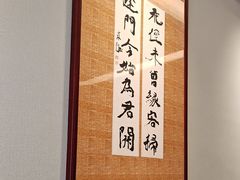 花徑未曾緣客掃
蓬門今始為君開